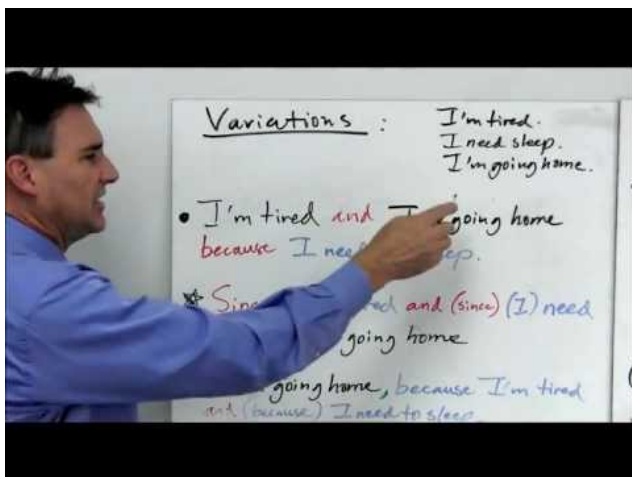 Variations :
I'm tired.
I need sleep.
I'm going home.
• I'm tired and I going home
because I need sleep.
☆ Since and (since) (I) need
going home
going home, because I'm tired
and (because) I need to sleep.